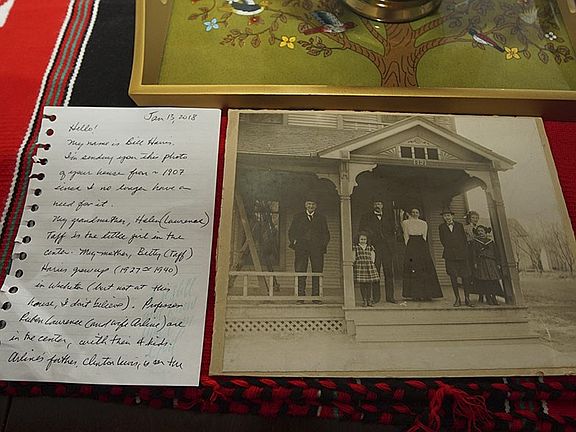 Jan 13, 2018
Hello!
My name is Bill Harris.
I'm sending you this photo
of your house from ~ 1907
since I no longer have a
need for it.
My grandmother, Helen (Laurence)
Taff is the little girl in the
center. My mother, Betty (Taff)
Harris grew up (1927 ~ 1940)
in Wichita (but not at this
house, I don't believe). Professor
Ruben Laurence (and wife Arline) are
in the center, with their 4 kids.
Arline's father, Clinton Lewis, is on the